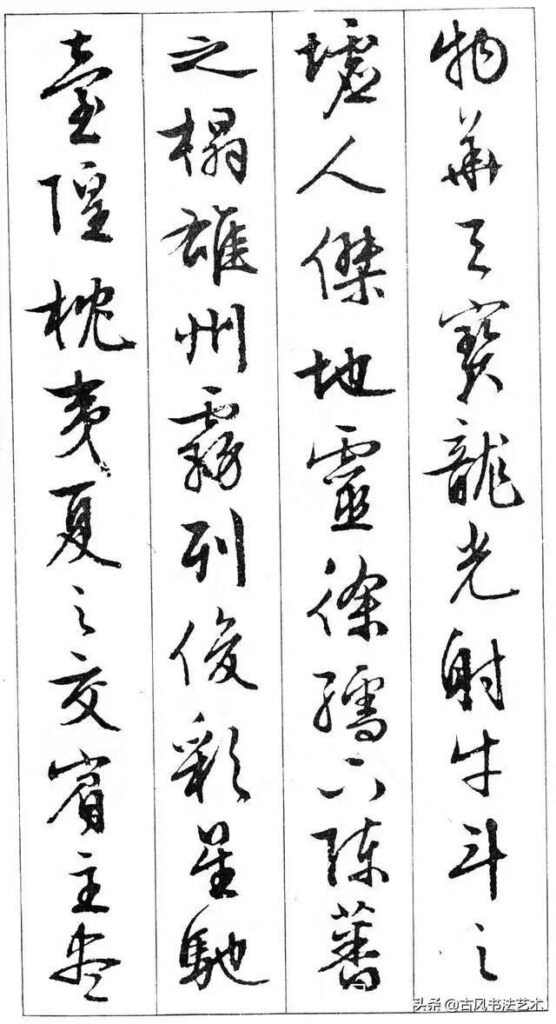 物華天寶龍光射牛斗之
墟人傑地靈徐孺下陳蕃
之榻雄州霧列俊彩星馳
臺隍枕夷夏之交賓主盡
头条 @古风书法艺术